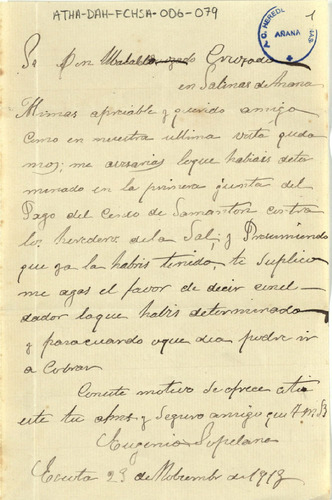 ATHA-DAH-FCHSA-006-079
1
A.C. HEREDE
ARANA
Sr Don Cruzado
en Salinas de Anana
Mi mas apreciable y querido amigo
Como en nuestra ultima vista queda
mos; me avisarias loque habiais deter
minado en la primera junta del
Pago del Censo de Samanton contra
los herederos dela Sal; y Presumiendo
que ya la habris tenido, te suplico
me agas el favor de decir conel
dador loque habis determinado
y paracuando oque dia podre ir
a Cobrar
Coneste motivo se ofrece a ti
este tu afmo y Seguro amigo que T.M.B
Eugenio Lopelana
23 de Nobiembr de 1918